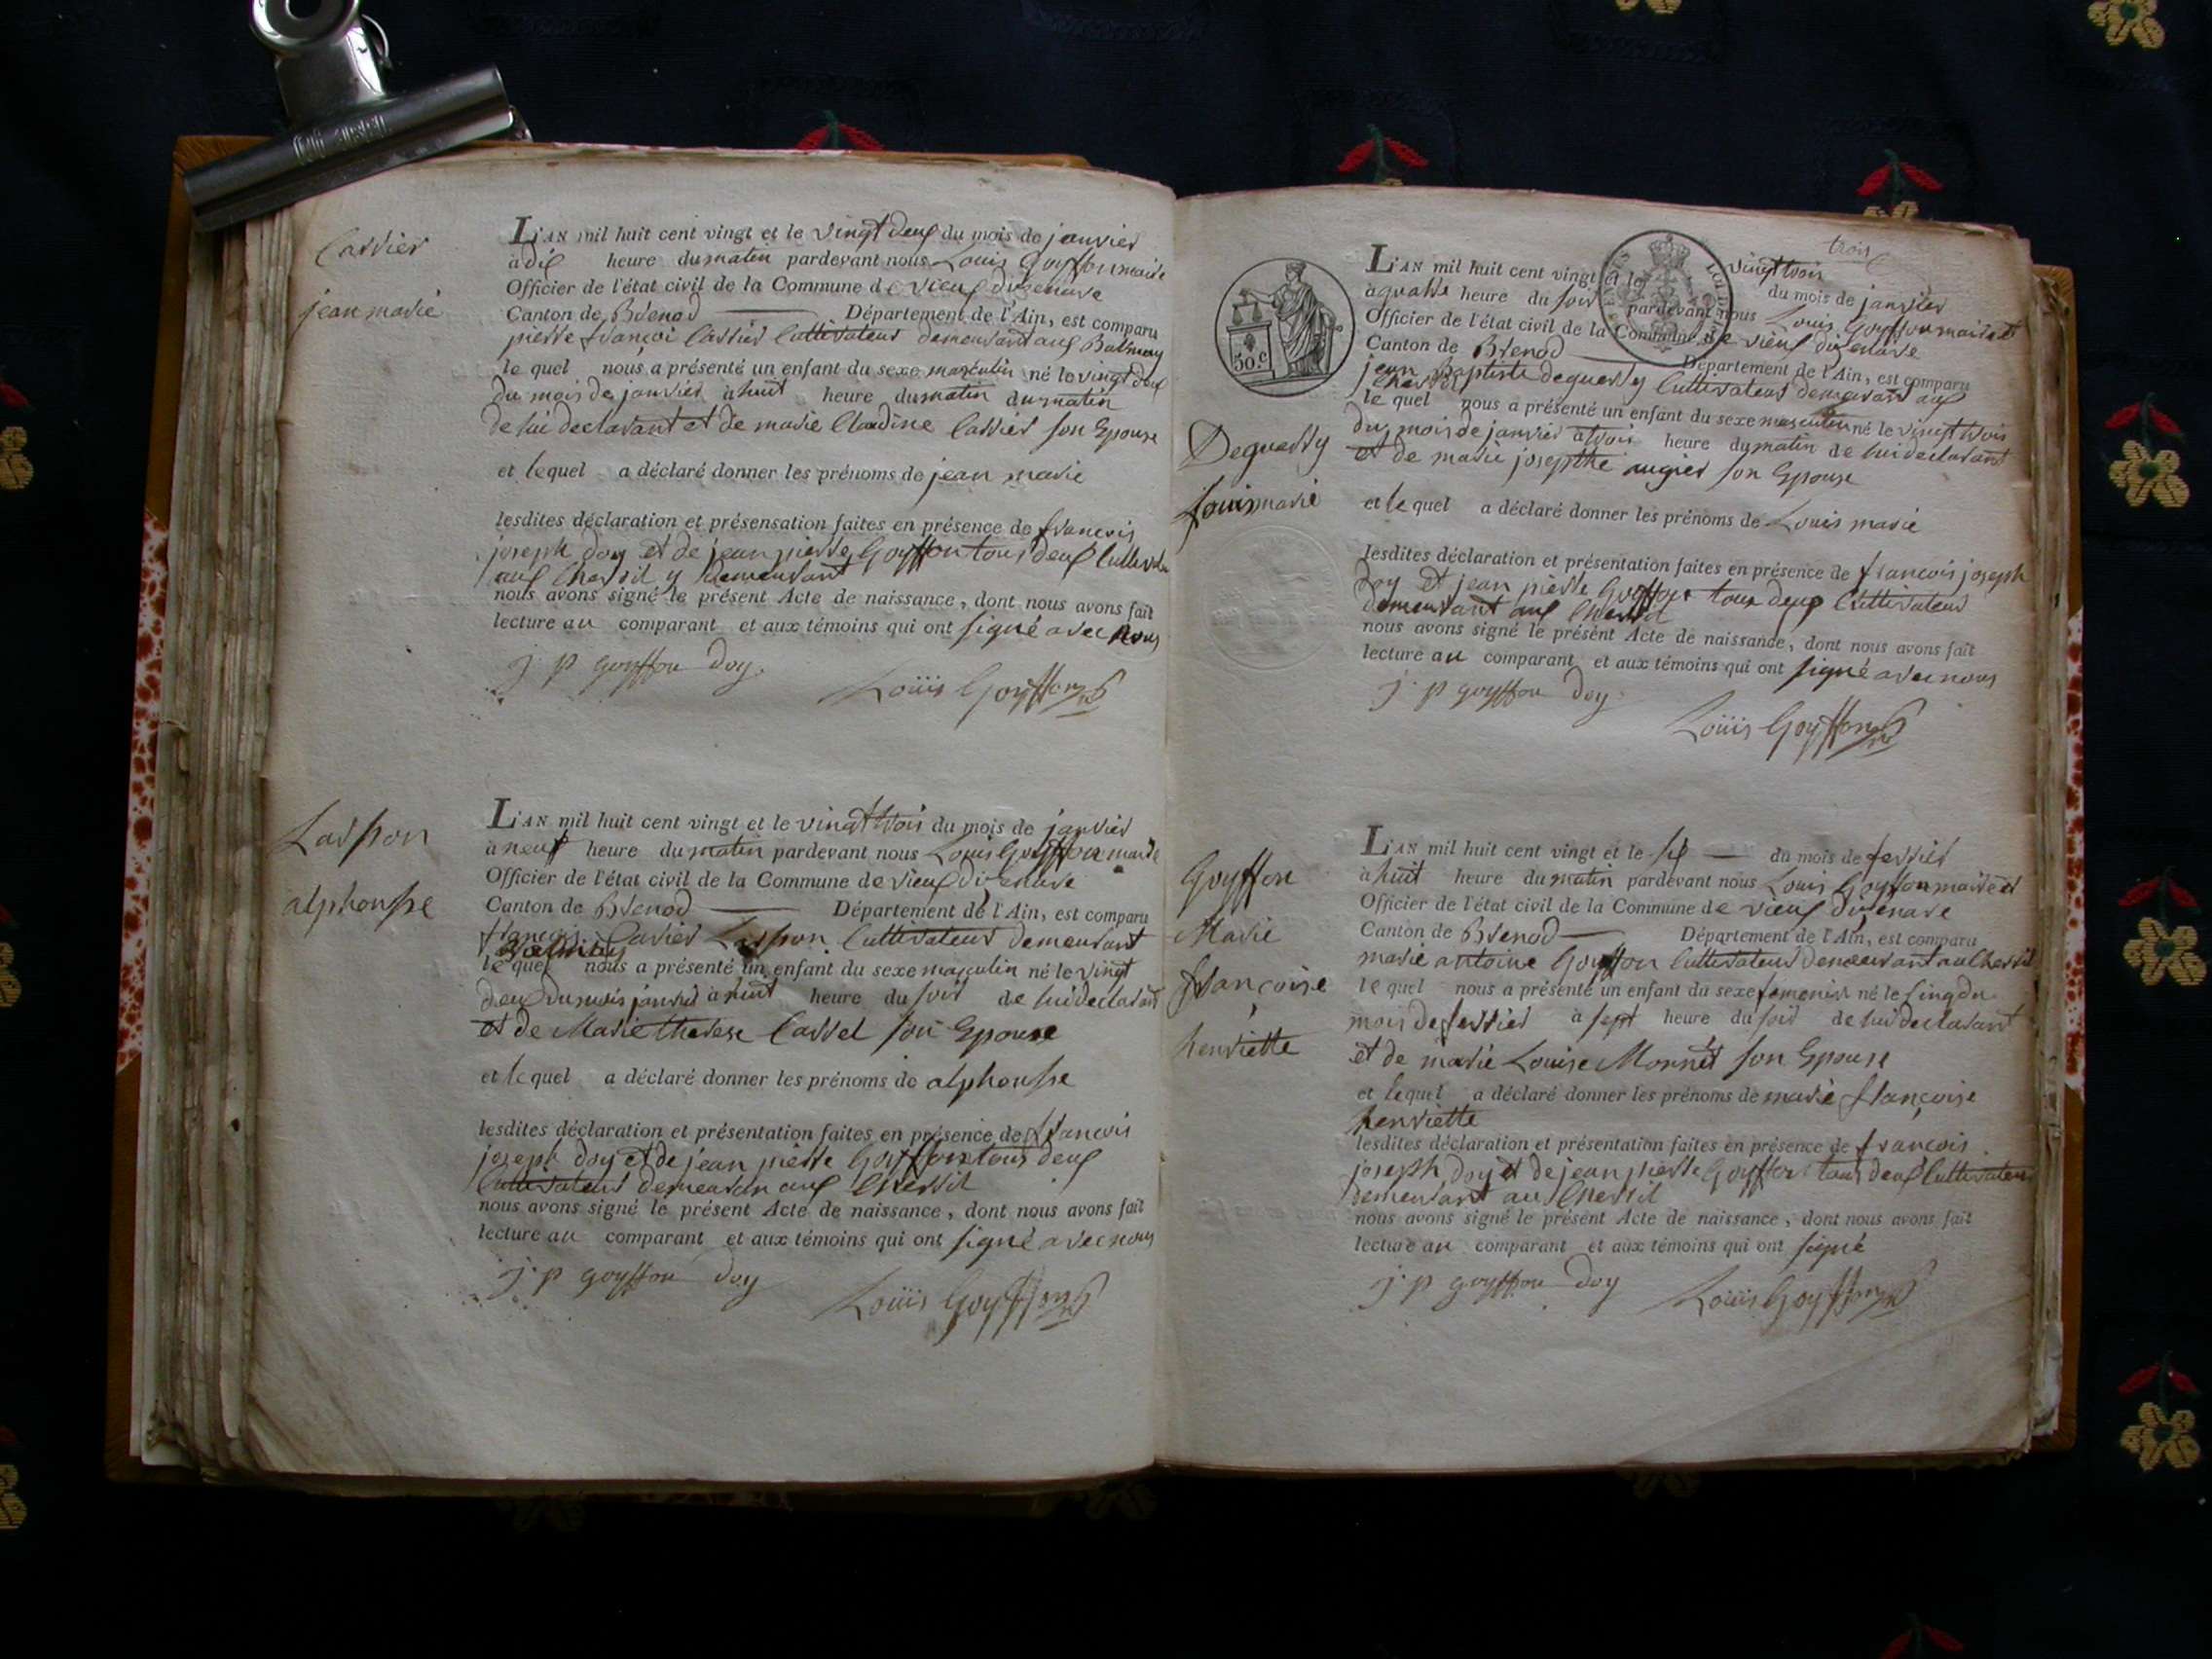 Carrier
jean marie
L'AN mil huit cent vingt et le vingt deux du mois de janvier
à dix heure du matin pardevant nous Louis Goyffon maire
Officier de l'état civil de la Commune de vieux dizenave
Canton de Brénod Département de l'Ain, est comparu
pierre françoi Carrier Cultivateur demeurant aux Balmay
le quel nous a présenté un enfant du sexe masculin né le vingt deux
du mois de janvier à huit heure du matin du matin
de lui declarant et de marie Claudine Carrier son Epouse
et lequel a déclaré donner les prénoms de jean marie
lesdites déclaration et présensation faites en présence de francois
joseph doy et de jean pierre Goyffon tous deux
aux Chevril y demeurant
nous avons signé le présent Acte de naissance, dont nous avons fait
lecture au comparant et aux témoins qui ont signé avec nous
j. p goyffon doy.
Loüis Goyffon
Larpon
alphonsse
L'AN mil huit cent vingt et le vingt trois du mois de janvier
à neuf heure du matin pardevant nous Louis Goyffon maire
Officier de l'état civil de la Commune de vieux dizenave
Canton de Brenod Département de l'Ain, est comparu
françois Larpon Cultivateur demeurant
Balmay
le quel nous a présenté un enfant du sexe masculin né le vingt
deux du mois janvier à huit heure du soir de lui declarant
et de Marie therese Carrel son Epouse
et lequel a déclaré donner les prénoms de alphonsse
lesdites déclaration et présentation faites en présence de francois
joseph doy et de jean pierre Goyffon tous deux
Cultivateur demeuran aux Chevril
nous avons signé le présent Acte de naissance, dont nous avons fait
lecture au comparant et aux témoins qui ont signé avec nous
j. p goyffon doy
Loüis Goyffon
trois
50.c
Deguerry
Louis marie
L'AN mil huit cent vingt et le vingt trois
du mois de janvier
à quatre heure du soir pardevant nous Louis Goyffon maire et
Officier de l'état civil de la Commune de vieux dizenave
Canton de Brenod Département de l'Ain, est comparu
jean baptiste deguerry Cultivateur demeurant aux
Chevril
le quel nous a présenté un enfant du sexe masculin né le vingt trois
du mois de janvier à trois heure du matin de lui declarant
et de marie josepthe augier son Epouse
et lequel a déclaré donner les prénoms de Louis marie
lesdites déclaration et présentation faites en présence de francois joseph
doy et jean pierre Goyffon tous deux Cultivateur
demeurant aux Chevril
nous avons signé le présent Acte de naissance, dont nous avons fait
lecture au comparant et aux témoins qui ont signé avec nous
j. p goyffon doy.
Loüis Goyffon
Goyffon
Marie
françoise
henriette
L'AN mil huit cent vingt et le six du mois de fevrier
à huit heure du matin pardevant nous Louis Goyffon maire et
Officier de l'état civil de la Commune de vieux dizenave
Canton de Brenod Département de l'Ain, est comparu
marie antoine Goyffon Cultivateur demeurant au Chevril
le quel nous a présenté un enfant du sexe femenin né le sinq du
mois de fevrier à sept heure du soir de lui declarant
et de marie Louise Monnet son Epouse
et lequel a déclaré donner les prénoms de marie françoise
henriette
lesdites déclaration et présentation faites en présence de françois
joseph doy et de jean pierre Goyffon tous deux Cultivateur
demeurant au Chevril
nous avons signé le présent Acte de naissance, dont nous avons fait
lecture au comparant et aux témoins qui ont signé
j. p goyffon doy
Loüis Goyffon